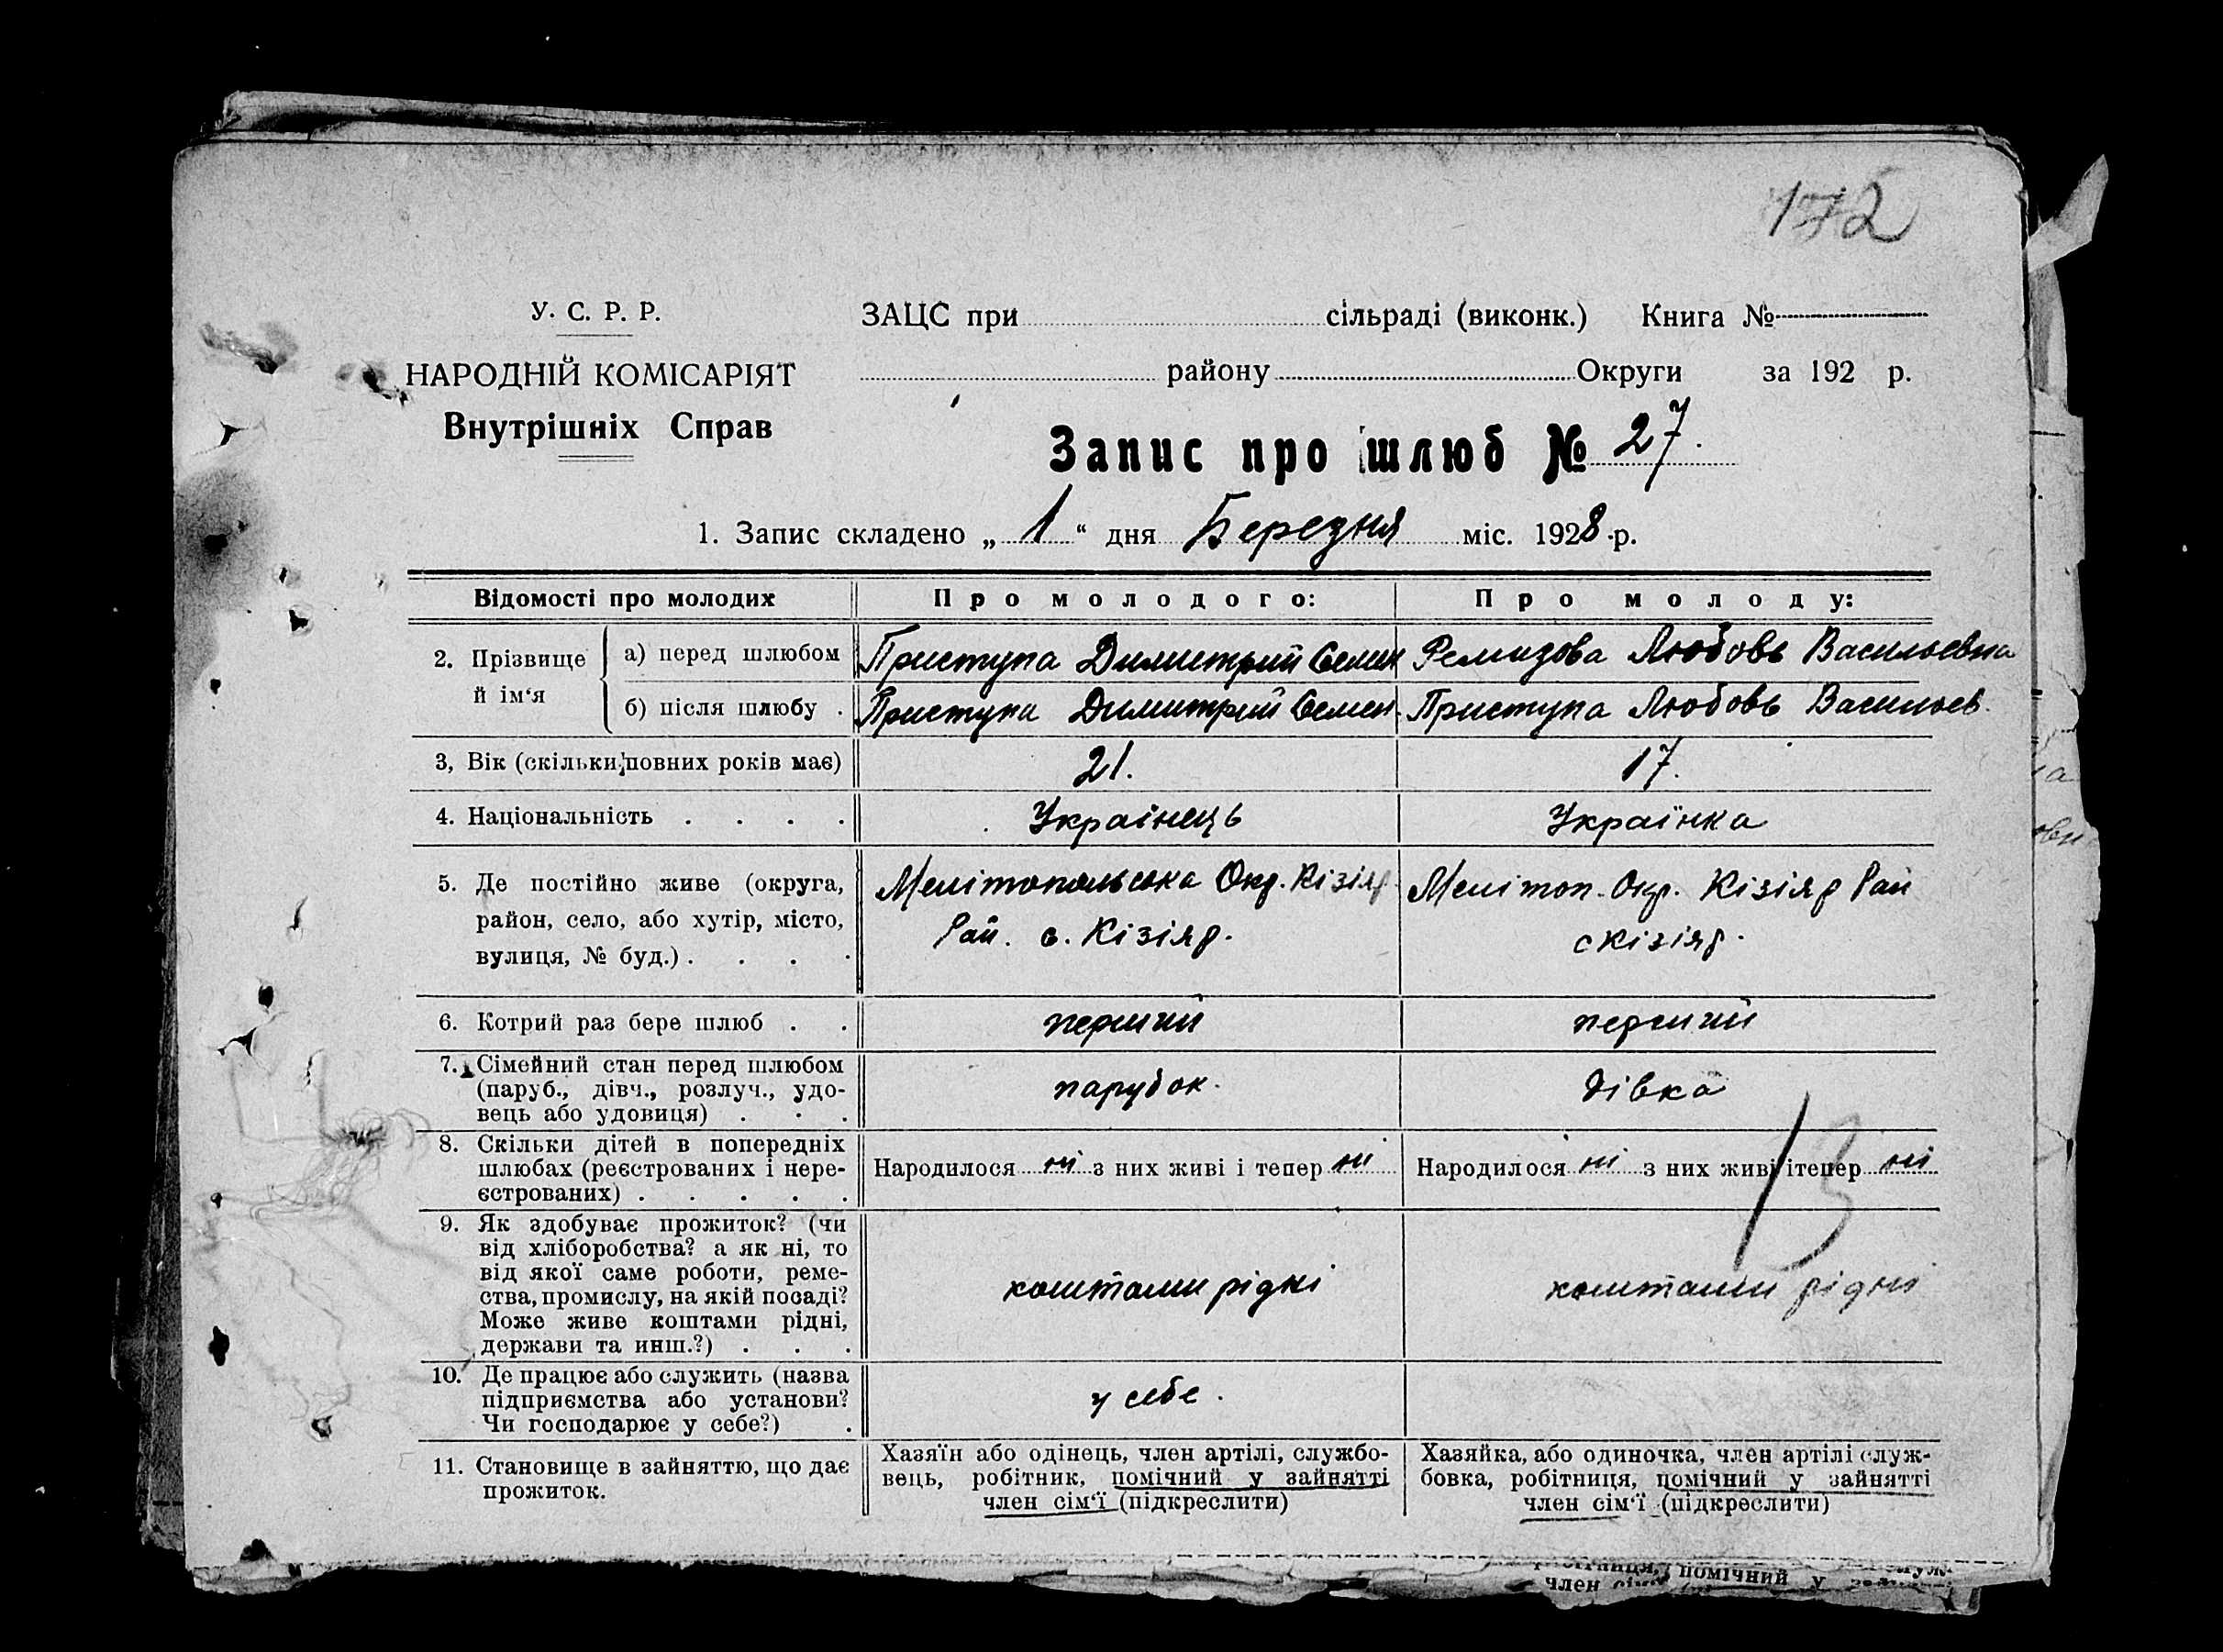 172
У. С. Р. Р.
НАРОДНІЙ КОМІСАРІЯТ
Внутрішніх Справ
ЗАЦС при сільраді (виконк.) Книга №
району Округи за 192 р.
Запис про шлюб № 27.
1. Запис складено „ 1 “ дня Березня міс. 1928 р.
Відомості про молодих Про молодого: Про молоду:
2. Прізвище й ім‘я
а) перед шлюбом Приступа Димитрий Семен Ремизова Любовь Васильевна
б) після шлюбу . Приступа Димитрий Семен. Приступа Любовь Васильев.
3, Вік (скільки повних років має) 21. 17.
4. Національність . . . . Українець Українка
5. Де постійно живе (округа,
район, село, або хутір, місто,
вулиця, № буд.) . . . .
Мелітопольська Окр. Кізіяр
Рай. с. Кізіяр.
Мелітоп. Окр. Кізіяр Рай
с Кізіяр.
6. Котрий раз бере шлюб . . перший перший
7. Сімейний стан перед шлюбом
(паруб., дівч., розлуч., удо-
вець або удовиця) . . .
парубок. дівка
8. Скільки дітей в попередніх
шлюбах (реєстрованих і нере-
єстрованих) . . . . .
Народилося ні з них живі і тепер ні
Народилося ні з них живі ітепер ні
13
9. Як здобуває прожиток? (чи
від хліборобства? а як ні, то
від якої саме роботи, реме-
ства, промислу, на якій посаді?
Може живе коштами рідні,
держави та инш.?) . . .
коштами рідні коштами рідні
10. Де працює або служить (назва
підприємства або установи?
Чи господарює у себе?) .
у себе.
11. Становище в зайняттю, що дає
прожиток.
Хазяїн або одінець, член артілі, службо-
вець, робітник, помічний у зайнятті
член сім‘ї (підкреслити)
Хазяйка, або одиночка, член артілі служ-
бовка, робітниця, помічний у зайнятті
член сім‘ї (підкреслити)
помічний у
член